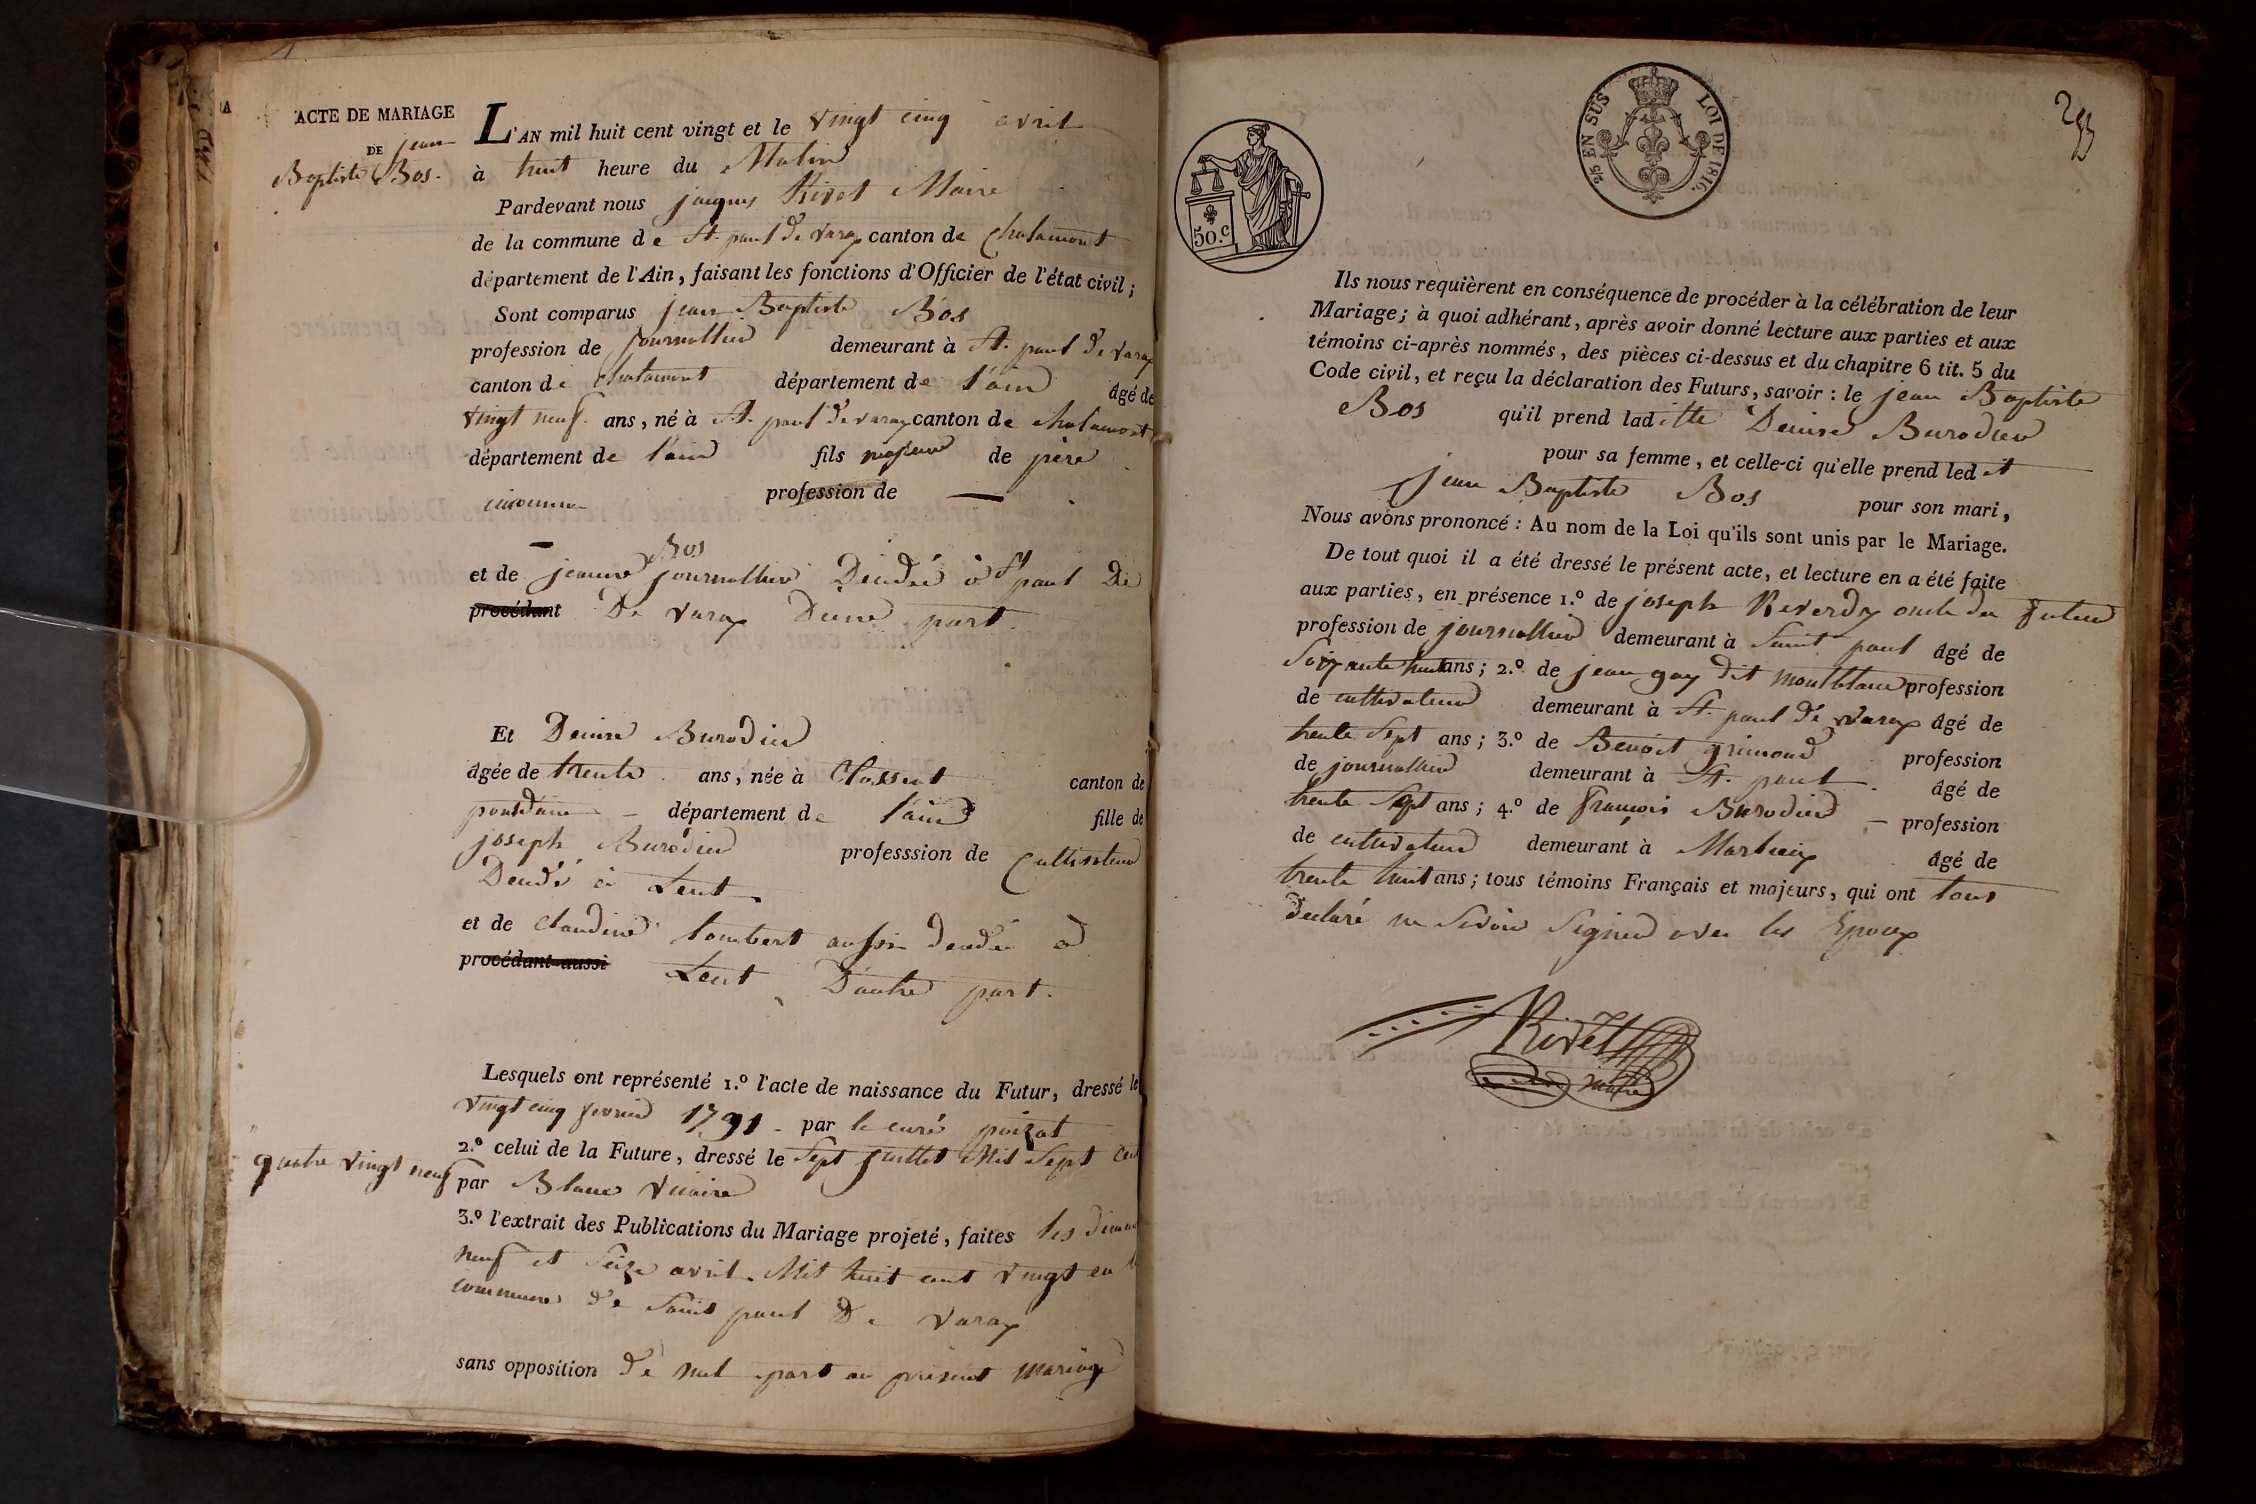 ACTE DE MARIAGE
DE jean
Baptiste Bos.
L'AN mil huit cent vingt et le vingt cinq avril
à huit heure du Matin
Pardevant nous jacques Rivet Maire
de la commune de St. paul de varax canton de Chalamont
département de l'Ain, faisant les fonctions d'Officier de l'état civil;
Sont comparus jean Baptiste Bos
profession de journallier demeurant à St. paul de varax
canton de chalamont département de l'ain âgé de
vingt neuf ans, né à St. paul de varax canton de chalamont
département de l'ain fils majeur de père
inconnu profession de —
et de jeanne Bos journallière Décédée à St paul De
procédant De varax D'une part.
Et Denise Burodier
âgée de trente ans, née à canton de
pontdain département de l'ain fille de
joseph Burodier professsion de Cultivateur
Décédé à Lent
et de Claudine lombert aussi décédée à
procédant aussi Lent D'autre part.
Lesquels ont représenté 1.º l'acte de naissance du Futur, dressé le
vingt cinq fevrier 1791 - par le curé poizat
2.º celui de la Future, dressé le Sept juillet Mil Sept cent
quatre vingt neuf par Blanc vicaire
3.º l'extrait des Publications du Mariage projeté, faites les
neuf et Seize avril Mil huit cent vingt en la
commune de Saint paul De varax
sans opposition de nul part au présent mariage
50.c
25 EN SUS LOI DE 1816.
293
Ils nous requièrent en conséquence de procéder à la célébration de leur
Mariage; à quoi adhérant, après avoir donné lecture aux parties et aux
témoins ci-après nommés, des pièces ci-dessus et du chapitre 6 tit. 5 du
Code civil, et reçu la déclaration des Futurs, savoir: le jean Baptiste
Bos qu'il prend laditte Denise Burodier
pour sa femme, et celle-ci qu'elle prend ledit
jean Baptiste Bos pour son mari,
Nous avons prononcé: Au nom de la Loi qu'ils sont unis par le Mariage.
De tout quoi il a été dressé le présent acte, et lecture en a été faite
aux parties, en présence 1.º de joseph Reverdy oncle du futur
profession de journallier demeurant à Saint paul âgé de
Soixante huit ans; 2.º de jean gay dit montblanc profession
de cultivateur demeurant à St. paul de varax âgé de
trente Sept ans; 3.º de Benoit grimond profession
de journallier demeurant à St. paul âgé de
trente Sept ans; 4.º de françois Burodier profession
de cultivateur demeurant à Marlieux âgé de
trente huit ans; tous témoins Français et majeurs, qui ont tous
declaré ne Savoir Signer avec les Epoux
Rivet
maire